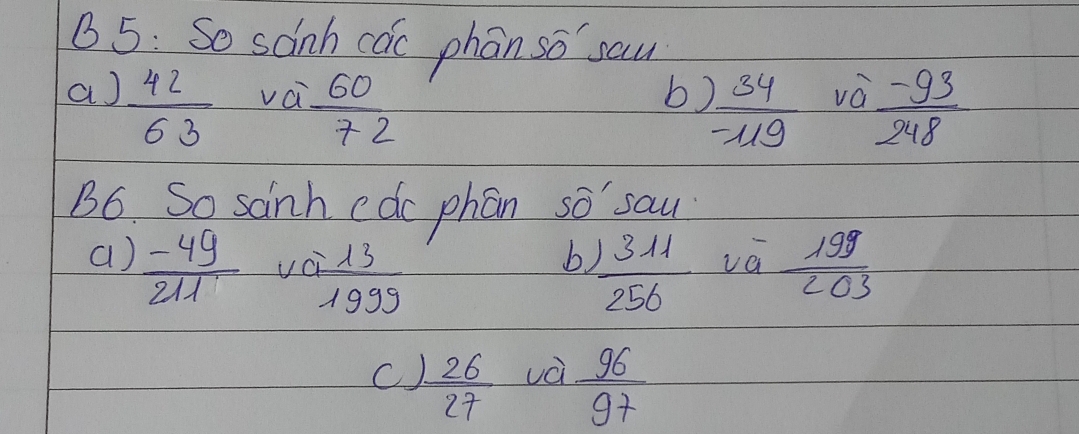 B5: So sánh các phân số sau:
a) 42/63 và 60/72 b) 34/-119 và -93/248
B6. So sánh các phân số sau:
a) -49/211 và 13/1999 b) 311/256 và 199/203
c) 26/27 và 96/97